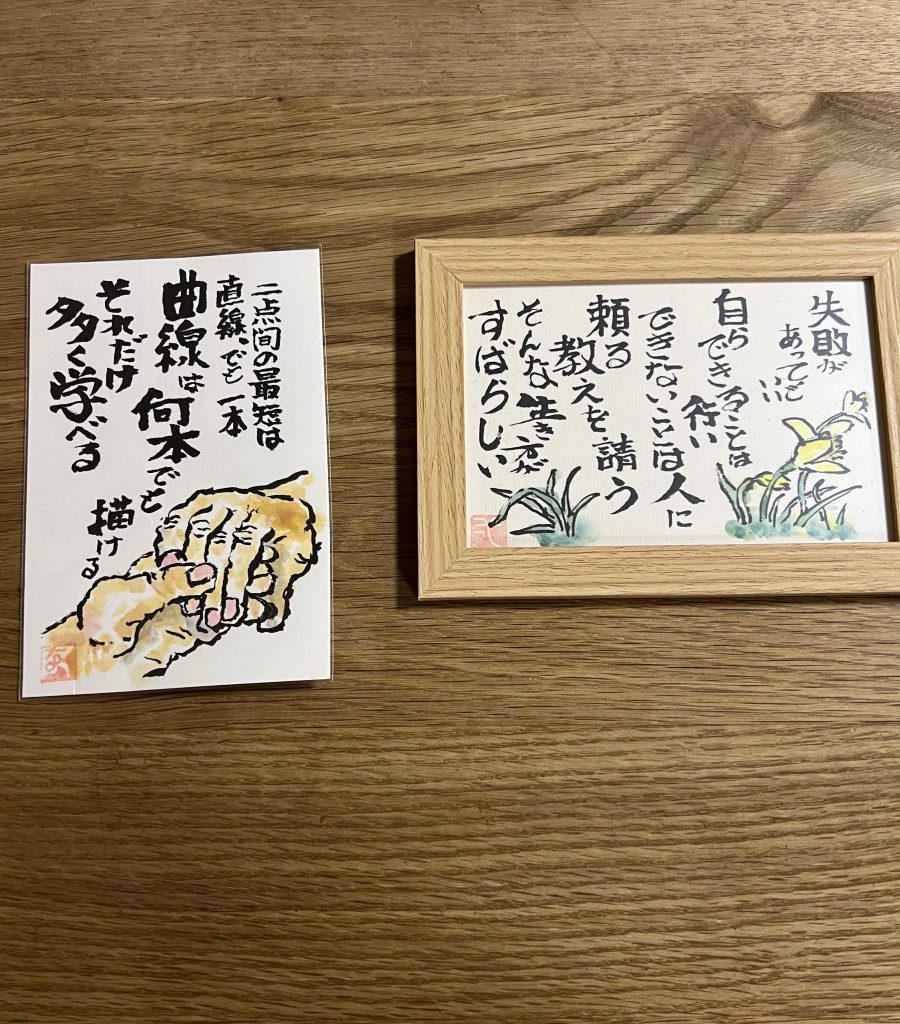 二点間の最短は
直線、でも一本
曲線は
何本でも
描ける
それだけ
多く学べる
失敗が
あっても
いい
自ら
できることは
行い
できないことは人に
頼る
教えを
請う
そんな生き方が
すばらしい